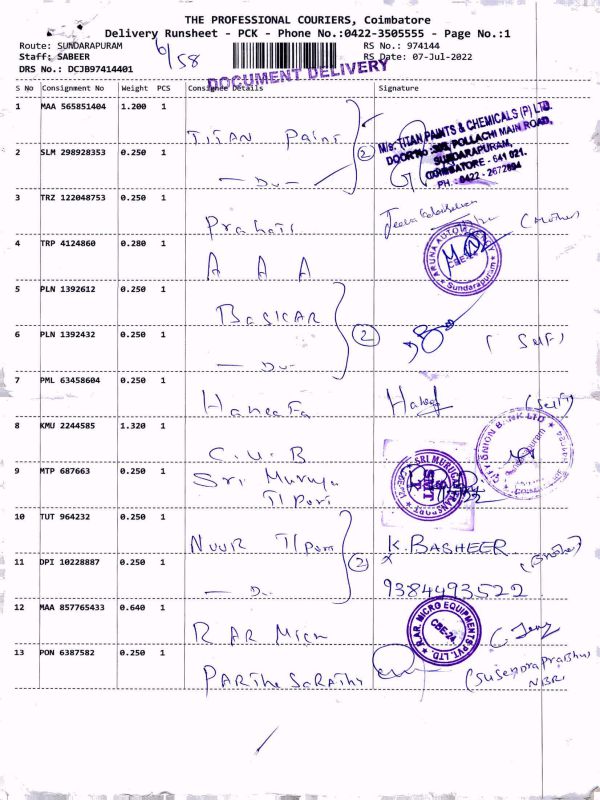 THE PROFESSIONAL COURIERS, Coimbatore
Delivery Runsheet - PCK - Phone No.:0422-3505555 - Page No.:1
Route: SUNDARAPURAM RS No.: 974144
Staff: SABEER 6/58 RS Date: 07-Jul-2022
DRS No.: DCJB97414401 DOCUMENT DELIVERY
S No Consignment No Weight PCS Consignee Details Signature
1 MAA 565851404 1.200 1
TITAN Paint 2
M/s. TITAN PAINTS & CHEMICALS (P) LTD.
POLLACHI MAIN ROAD,
SUNDARAPURAM,
COIMBATORE - 641 021.
PH : 0422 - 2672894
2 SLM 298928353 0.250 1
— Do —
3 TRZ 122048753 0.250 1
(Mother)
4 TRP 4124860 0.280 1
A A A
CBE-24
Sundarapuram
5 PLN 1392612 0.250 1
BASKAR 2
6 PLN 1392432 0.250 1
— Do —
7 PML 63458604 0.250 1
Haneefa (Self)
8 KMU 2244585 1.320 1
C.U.B
CITY UNION BANK LTD
9 MTP 687663 0.250 1
Sri Muruga
T/Port
SRI MURUGA TRANSPORT
SMT
10 TUT 964232 0.250 1
NUUR T/Port 2 K. BASHEER
11 DPI 10228887 0.250 1
— Do — 9384493522
12 MAA 857765433 0.640 1
R AR Micro
R.AR. MICRO EQUIPMENTS PVT. LTD.
CBE-24
13 PON 6387582 0.250 1
PARTHA SARATHY
(Susendra Prabhu
NBR)